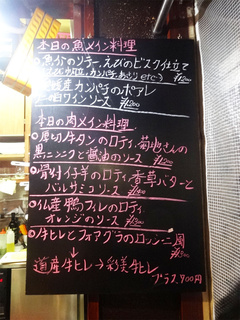 本日の魚メイン料理
魚介のソテー、えびのビスク仕立て
カンパチ、あさり etc…)
産カンパチのポアレ
ワインソース
本日の肉メイン料理
○厚切牛タンのロティ、菊地さんの
黒ニンニクと醤油のソース
○骨付仔羊のロティ 香草バターと
バルサミコソース
○仏産鴨フィレのロティ
オレンジのソース
○牛ヒレとフォアグラのロッシーニ風
↓
道産牛ヒレ→彩美牛ヒレ
プラス700円